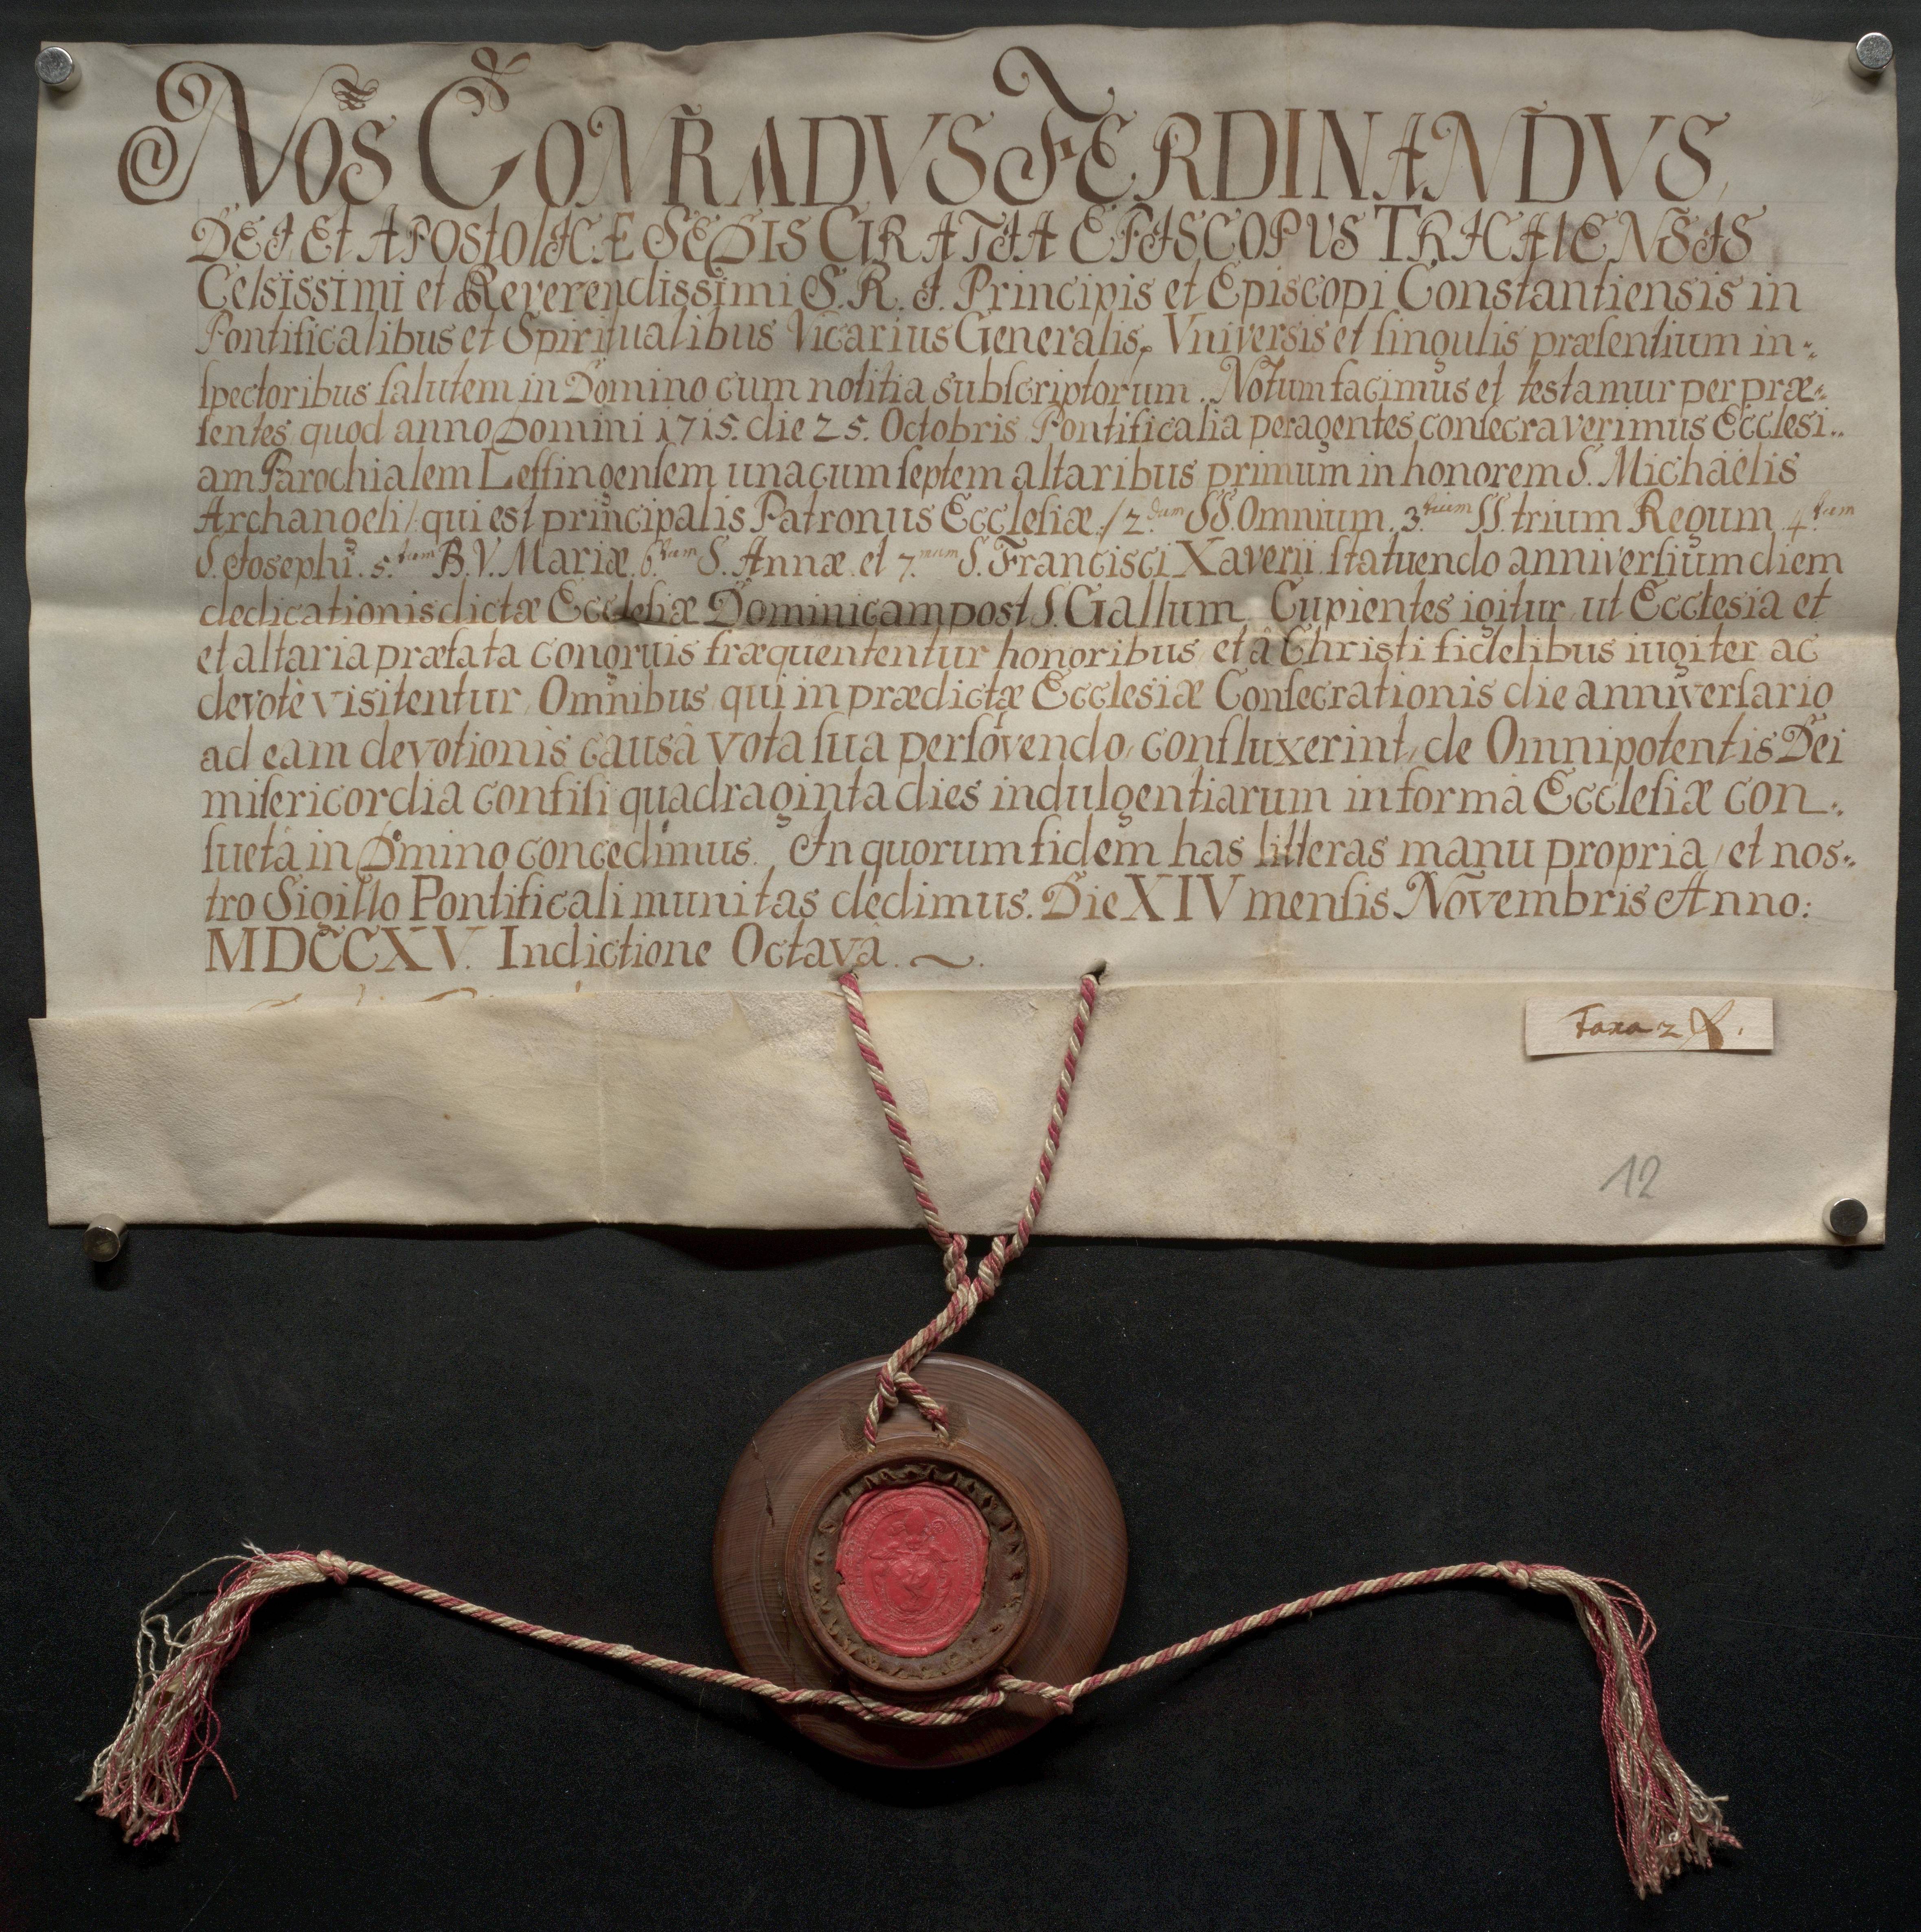 Nos CONRADVS FERDINANDVS,
DEI, Et APOStOlICÆ SEDIS GRATIA EPISCOPVS TRICAlENSIS
Celsissimi et Reverendissimi S. R. I. Principis et Episcopi Constantiensis in
Pontificalibus et Spiritualibus Vicarius Generalis, Vniversis et ſingulis præſentium in-
ſpectoribus ſalutem in Domino cum notitia subſcriptorum. Notum facimus et testamur per præ-
ſentes, quod anno Domini 1715. die 25. Octobris Pontificalia peragentes conſecraverimus Eccleſi..
am Parochialem Leffingenſem unacum ſeptem altaribus primum in honorem S. Michaëlis
Archangeli /: qui est principalis Patronus Eccleſiæ :/ 2.dum SS. Omnium. 3.tium SS. trium Regum 4.tum
S. Josephi. 5.tum B. V. Mariæ. 6.tum S. Annæ et 7.mum S. Francisci Xaverii ſtatuendo anniverſium diem
dedicationis dictæ Eccleſiæ Dominicam post S. Gallum. Cupientes igitur, ut Ecclesia et
et altaria præfata congruis fræquententur honoribus, et â Christi fidelibus iugiter ac
devotè visitentur, Omnibus, qui in prædictæ Ecclesiæ Conſecrationis die anniverſario
ad eam devotionis causâ vota ſua perſovendo, confluxerint, de Omnipotentis Dei
miſericordia confiſi quadraginta dies indulgentiarum in formâ Eccleſiæ con-
ſuetâ in Dmino concedimus. In quorum fidem has litteras manu propria, et nos-
tro Sigillo Pontificali munitas dedimus. Die XIV menſis Novembris Anno:
MDCCXV. Indictione Octavâ.
Taxa 2 f.
12